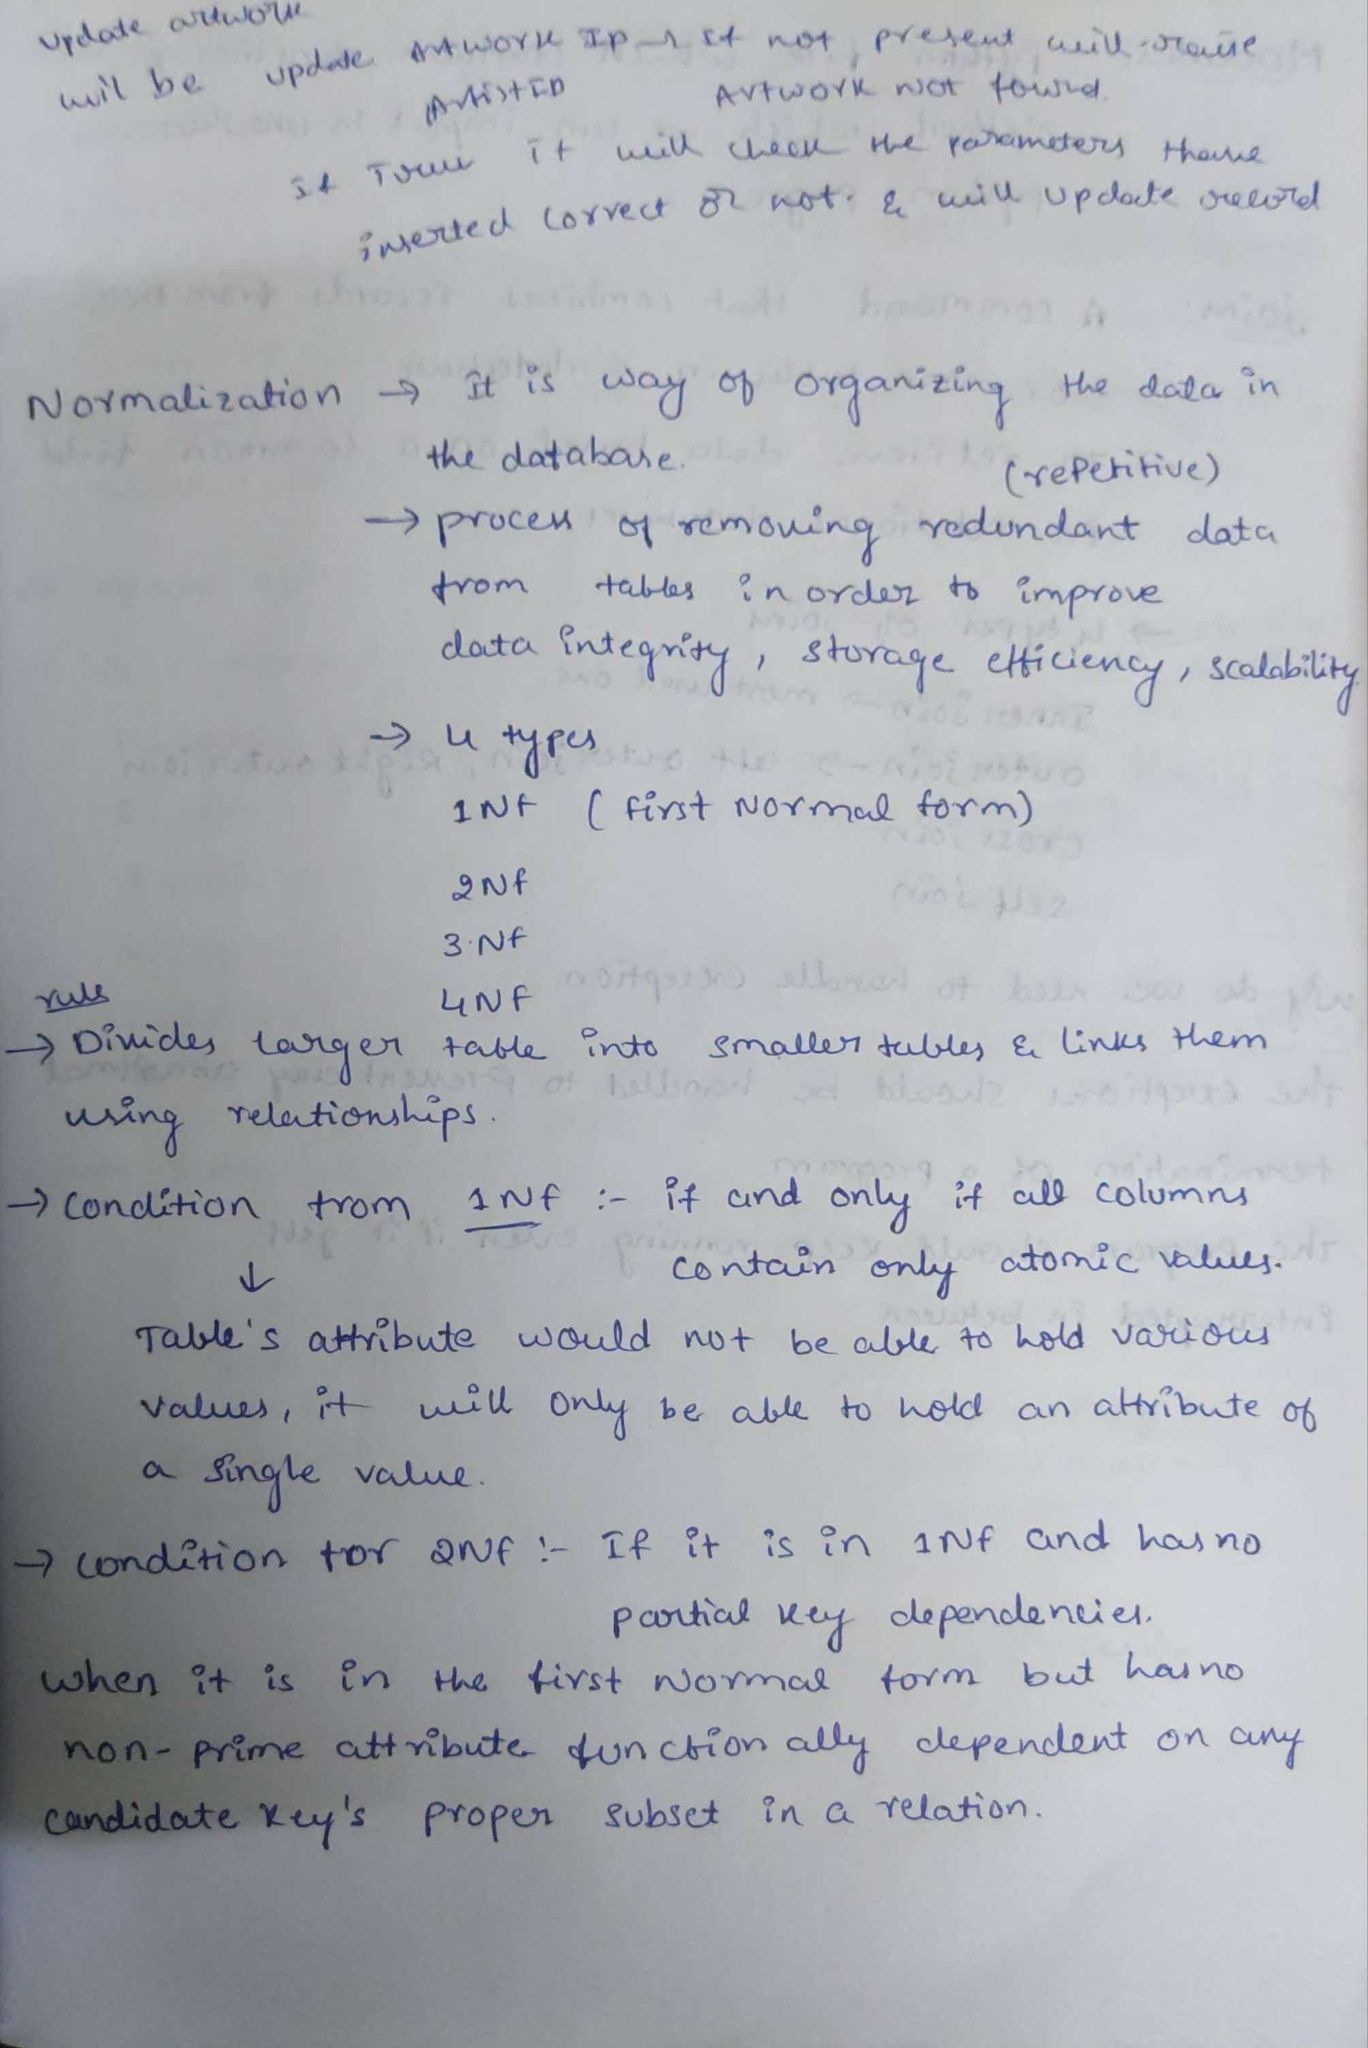 update artwork
will be update Artwork ID → if not present will raise
ArtistID Artwork not found.
if True it will check the parameters
inserted correct or not. & will update record
Normalization → It is way of organizing the data in
the database.
(repetitive)
→ process of removing redundant data
from tables in order to improve
data integrity, storage efficiency, scalability.
→ 4 types
1NF (First Normal form)
2NF
3NF
4NF
rule
→ Divides larger table into smaller tables & links them
using relationships.
→ Condition from 1NF :- if and only if all columns
contain only atomic values.
↓
Table's attribute would not be able to hold various
values, it will only be able to hold an attribute of
a single value.
→ condition for 2NF :- If it is in 1NF and has no
partial key dependencies.
when it is in the first Normal form but has no
non-prime attribute functionally dependent on any
candidate key's proper subset in a relation.